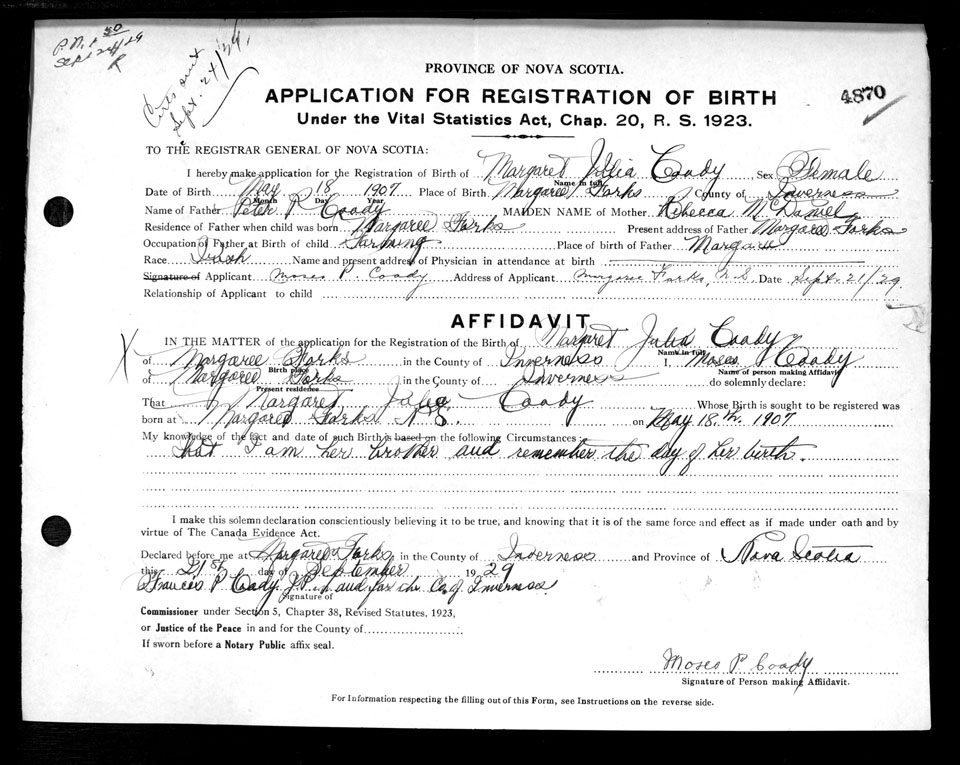 P.N. 1 50
Sept 24/29
R
Certs out
Sept. 24/29.
4870
PROVINCE OF NOVA SCOTIA.
APPLICATION FOR REGISTRATION OF BIRTH
Under the Vital Statistics Act, Chap. 20, R. S. 1923.
TO THE REGISTRAR GENERAL OF NOVA SCOTIA:
I hereby make application for the Registration of Birth of Margaret Julia Coady Sex Female
Name in full
Date of Birth May 18 1907 Place of Birth Margaree Forks County of Inverness
Month Day Year
Name of Father Peter P Coady MAIDEN NAME of Mother Rebecca McDaniel
Residence of Father when child was born Margaree Forks Present address of Father Margaree Forks
Occupation of Father at Birth of child Farming Place of Birth of Father Margaree
Race Irish Name and present address of Physician in attendance at birth
Signature of Applicant Moses P. Coady Address of Applicant Margaree Forks, N.S. Date Sept. 21/29
Relationship of Applicant to child
AFFIDAVIT
X
IN THE MATTER of the application for the Registration of the Birth of Margaret Julia Coady
Name in full
of Margaree Forks in the County of Inverness I, Moses P Coady
Birth place Name of person making Affidavit
of Margaree Forks in the County of Inverness do solemnly declare:
Present residence
That Margaret Julia Coady Whose Birth is sought to be registered was
born at Margaree Forks N S. on May 18.th. 1907
My knowledge of the fact and date of such Birth is based on the following Circumstances:
that I am her brother and remember the day of her birth.
I make this solemn declaration conscientiously believing it to be true, and knowing that it is of the same force and effect as if made under oath and by
virtue of The Canada Evidence Act.
Declared before me at Margaree Forks, in the County of Inverness and Province of Nova Scotia
this 21st day of September 1929
Francis P Coady J.P. in and for the Co. of Inverness
Signature of
Commissioner under Section 5, Chapter 38, Revised Statutes, 1923,
or Justice of the Peace in and for the County of
If sworn before a Notary Public affix seal.
Moses P. Coady
Signature of Person making Affidavit.
For Information respecting the filling out of this Form, see Instructions on the reverse side.